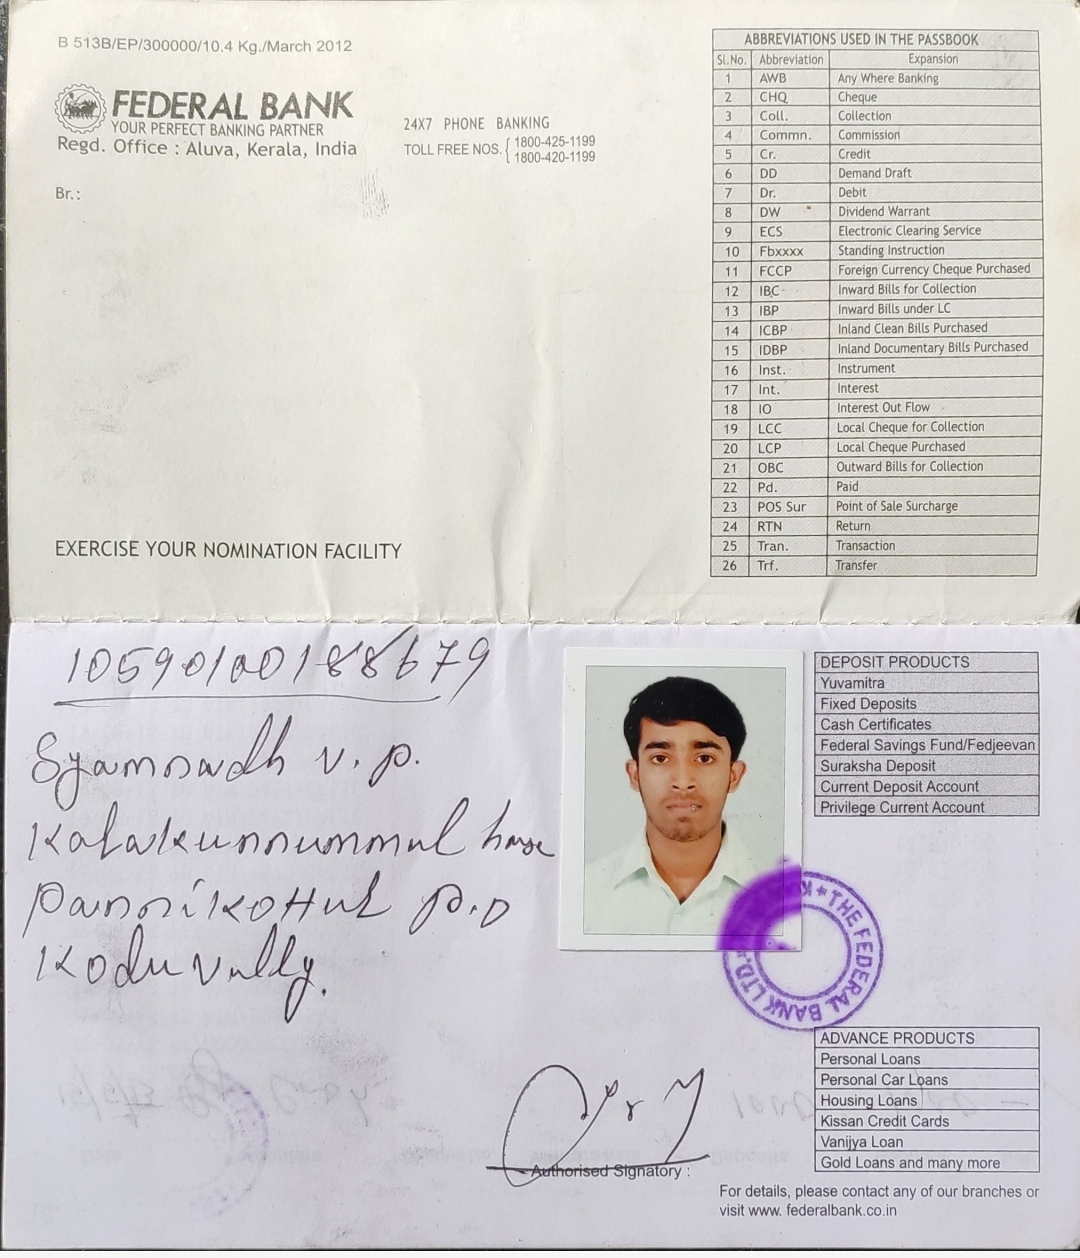 B 513B/EP/300000/10.4 Kg./March 2012
FEDERAL BANK
YOUR PERFECT BANKING PARTNER
Regd. Office : Aluva, Kerala, India
24X7 PHONE BANKING
TOLL FREE NOS. { 1800-425-1199
1800-420-1199
Br.:
EXERCISE YOUR NOMINATION FACILITY
ABBREVIATIONS USED IN THE PASSBOOK
Sl.No. Abbreviation Expansion
1 AWB Any Where Banking
2 CHQ Cheque
3 Coll. Collection
4 Commn. Commission
5 Cr. Credit
6 DD Demand Draft
7 Dr. Debit
8 DW Dividend Warrant
9 ECS Electronic Clearing Service
10 Fbxxxx Standing Instruction
11 FCCP Foreign Currency Cheque Purchased
12 IBC Inward Bills for Collection
13 IBP Inward Bills under LC
14 ICBP Inland Clean Bills Purchased
15 IDBP Inland Documentary Bills Purchased
16 Inst. Instrument
17 Int. Interest
18 IO Interest Out Flow
19 LCC Local Cheque for Collection
20 LCP Local Cheque Purchased
21 OBC Outward Bills for Collection
22 Pd. Paid
23 POS Sur Point of Sale Surcharge
24 RTN Return
25 Tran. Transaction
26 Trf. Transfer
10590100188679
Syamnadh v.p.
Kalakunnummal house
Pannikottul P.O
Koduvally.
DEPOSIT PRODUCTS
Yuvamitra
Fixed Deposits
Cash Certificates
Federal Savings Fund/Fedjeevan
Suraksha Deposit
Current Deposit Account
Privilege Current Account
THE FEDERAL BANK LTD.
ADVANCE PRODUCTS
Personal Loans
Personal Car Loans
Housing Loans
Kissan Credit Cards
Vanijya Loan
Gold Loans and many more
Authorised Signatory :
For details, please contact any of our branches or
visit www. federalbank.co.in